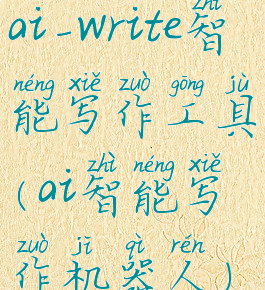 zhì
ai-write智
néng xiě zuò gōng jù
能写作工具
zhì néng xiě
(ai智能写
zuò jī qì rén
作机器人)